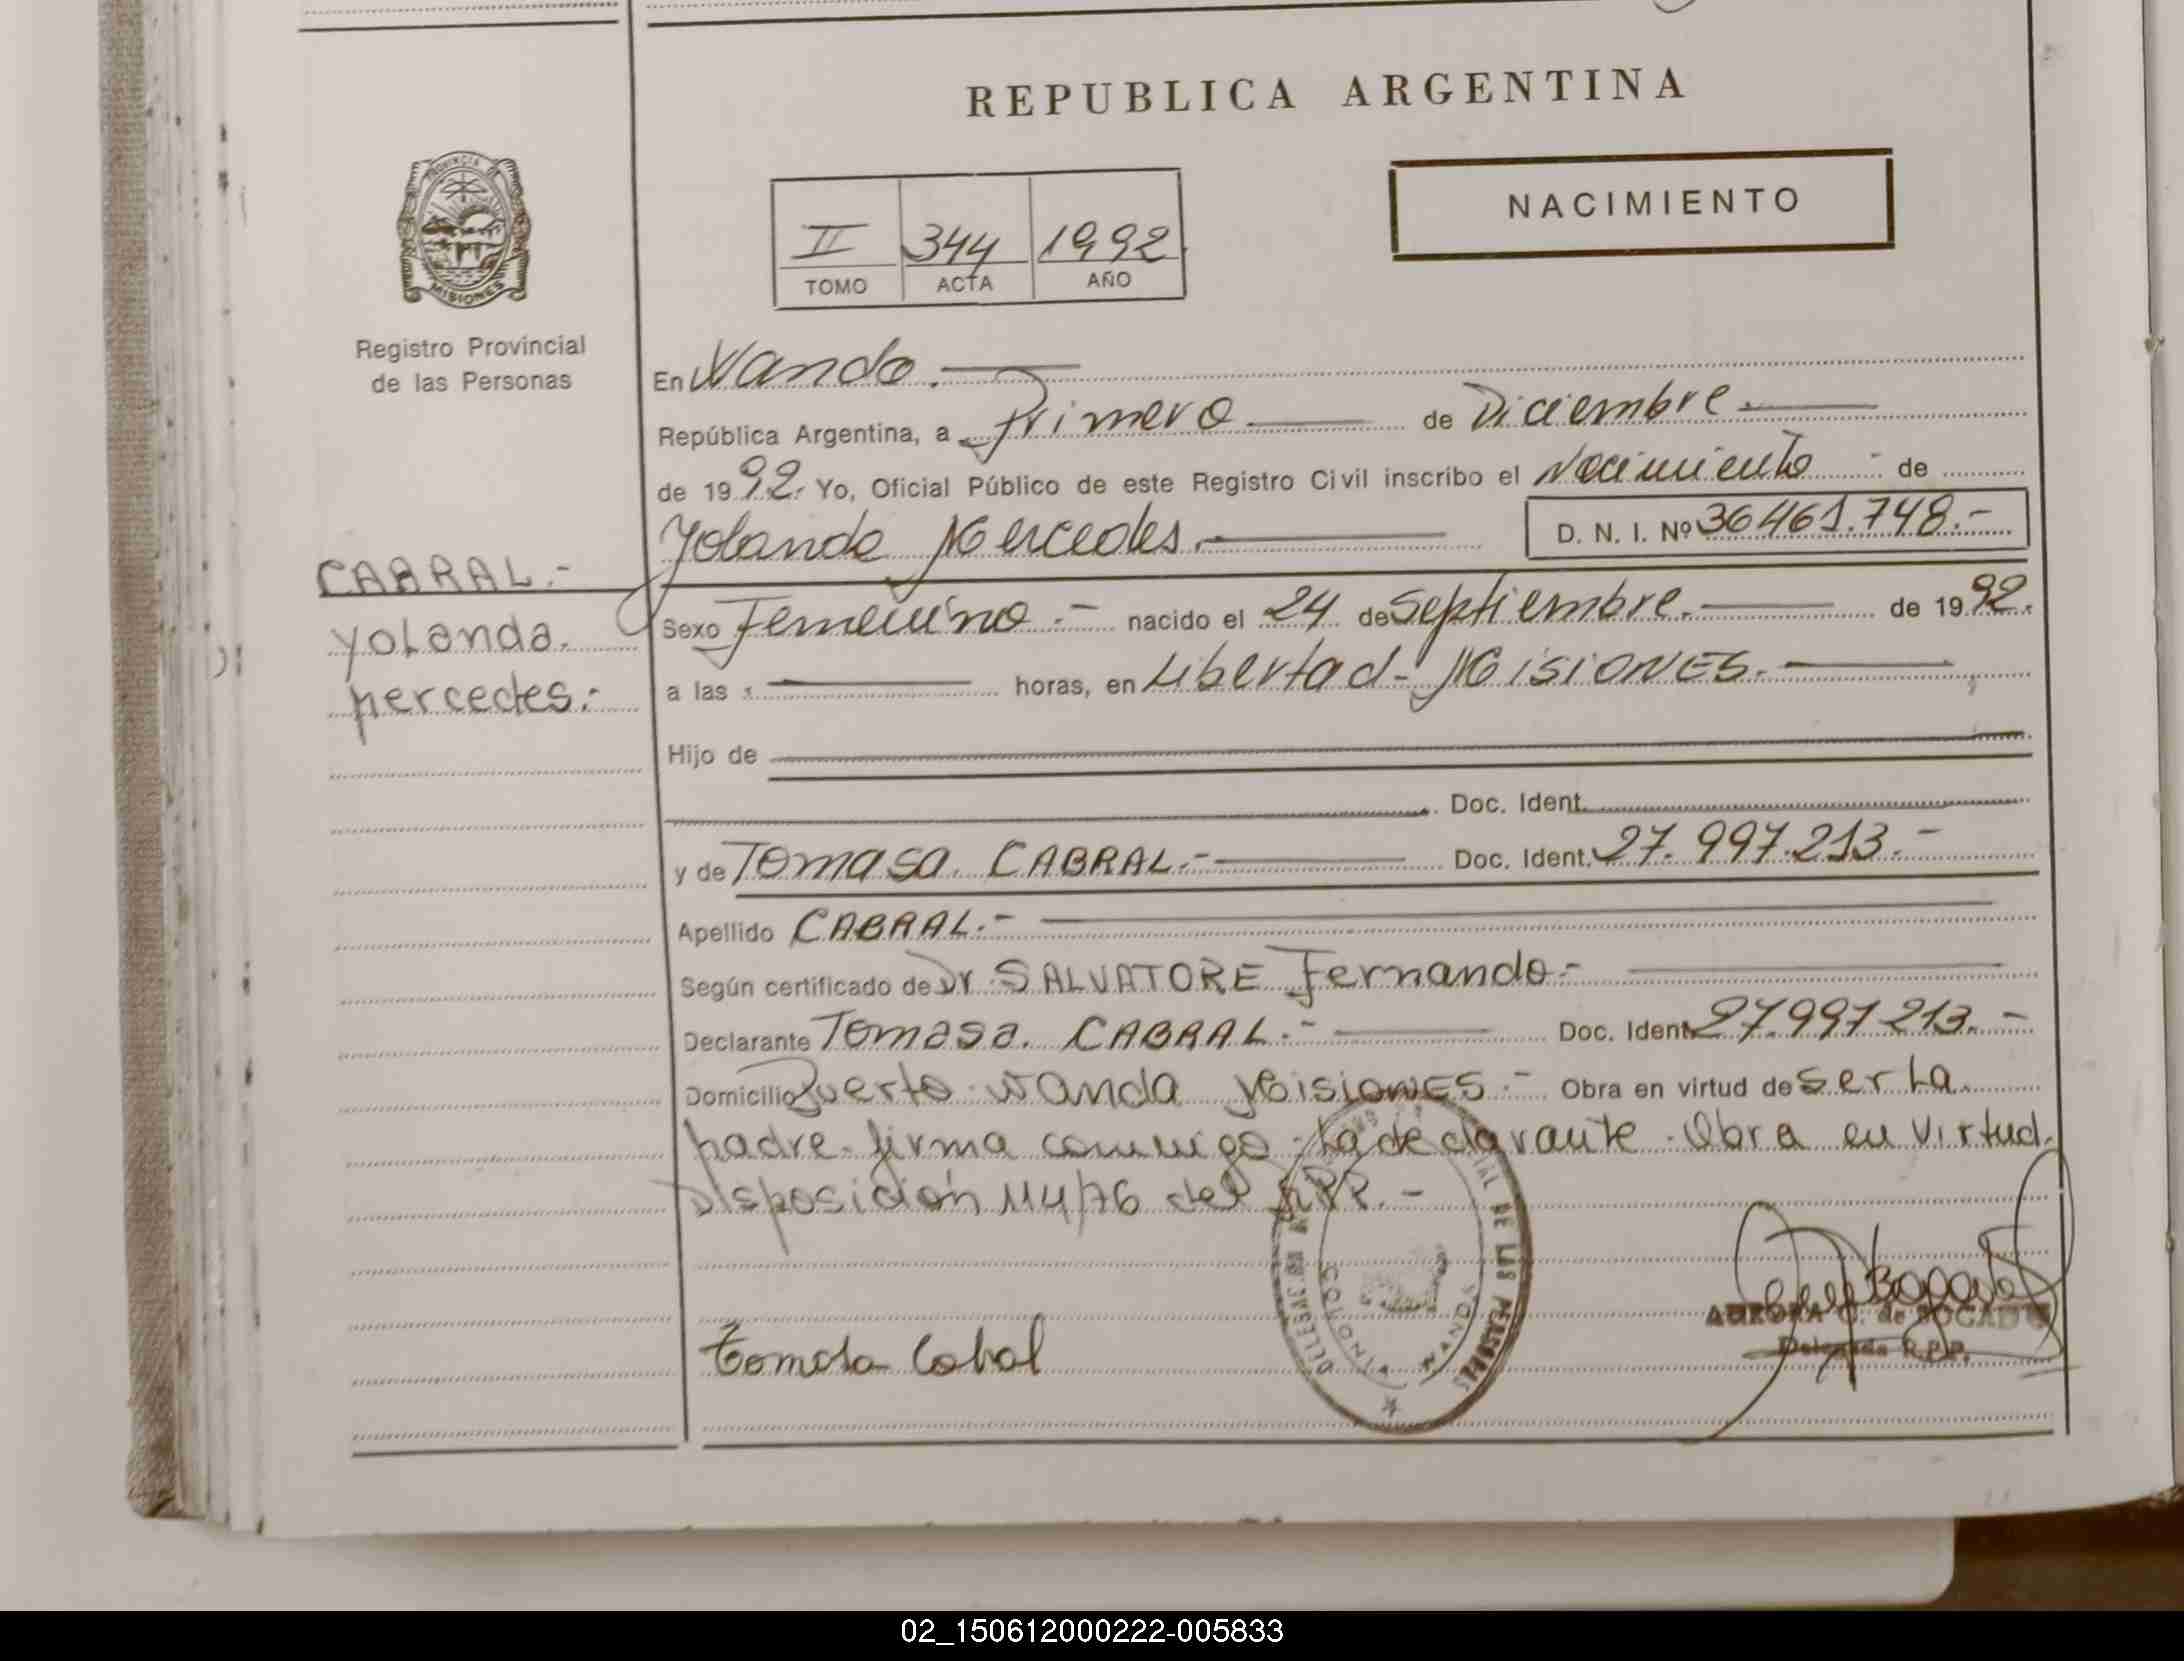 REPUBLICA ARGENTINA
NACIMIENTO
II 344 1992
TOMO ACTA AÑO
PROVINCIA
MISIONES
Registro Provincial
de las Personas
CABRAL.-
Yolanda.
Mercedes.-
En Wanda.
República Argentina, a Primero de Diciembre
de 1992. Yo, Oficial Público de este Registro Civil inscribo el Nacimiento - de
Yolanda Mercedes. D. N. I. Nº 36461.748.-
Sexo Femenino.- nacido el 24 de Septiembre. de 1992.
a las horas, en Libertad-Misiones.
Hijo de
Doc. Ident.
y de Tomasa. CABRAL.- Doc. Ident. 27.997.213.-
Apellido CABRAL.-
Según certificado de Dr. SALVATORE Fernando.-
Declarante Tomasa. CABRAL.- Doc. Ident. 27.997213.-
Domicilio Puerto Wanda Misiones.- Obra en virtud de ser La
padre. firma conmigo. La declarante. Obra en Virtud.
Disposición 114/76 del RPP.-
DE LAS PERSONAS
WANDA
MISIONES
Delegada R.P.P.
02_150612000222-005833